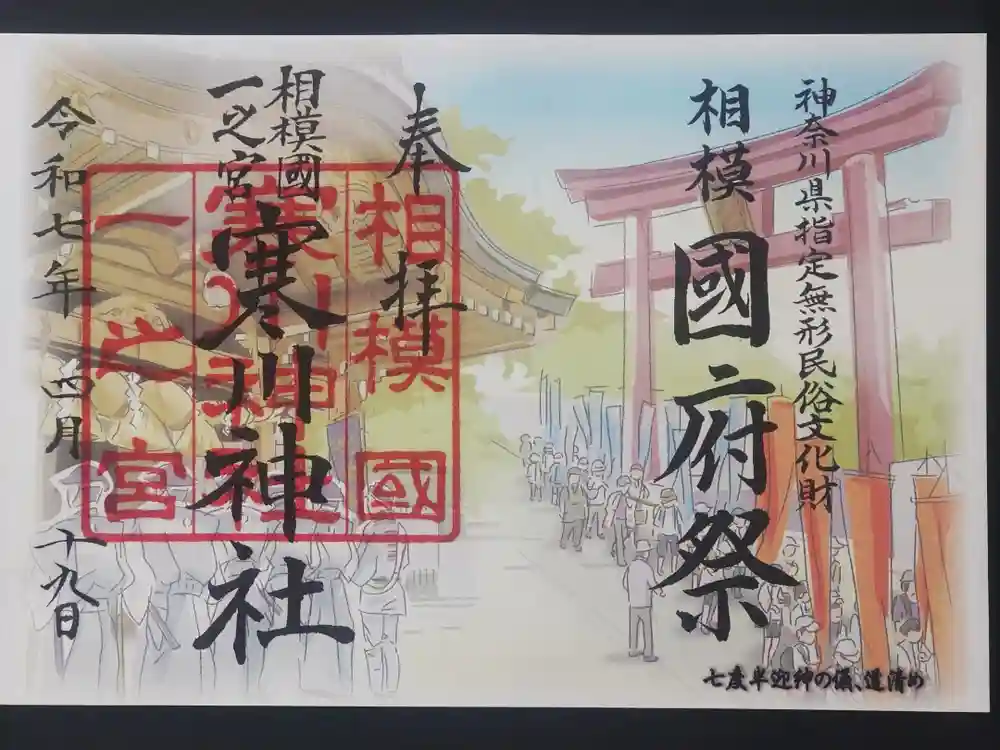 神奈川県指定無形民俗文化財
相模國府祭
七度半迎神の儀、道清め
奉拝
相模國
一之宮
寒川神社
相模國
寒川神社
一之宮
令和七年四月十九日